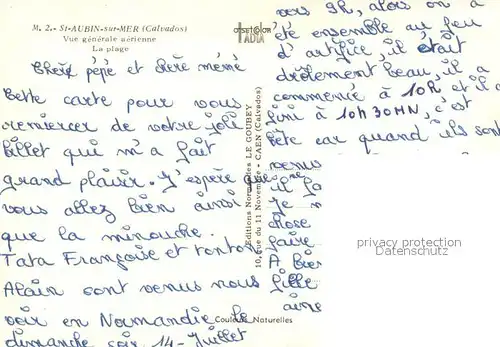 M. 2.- St-AUBIN-sur-MER (Calvados)
Vue générale aérienne
La plage
Chère pépé et chère mémé
Cette carte pour vous
remercier de votre joli
billet qui m'a fait
grand plaisir. J'espère que
vous allez bien ainsi
que la minouche.
Tata Françoise et tonton
Alain sont venus nous
voir en Normandie le
dimanche soir 14-Juillet
OFFSETCOLOR
IADIA
Editions Normandes LE GOUBEY
10, rue du 11 Novembre - CAEN (Calvados)
Couleurs Naturelles
vers 9h, alors on a
été ensemble au feu
d'artifice, il était
drôlement beau, il a
commencé à 10h et il a
fini à 10h30MN, c'est
bête car quand ils sont
venus
il
Je
faire
A
fille
privacy protection
Datenschutz